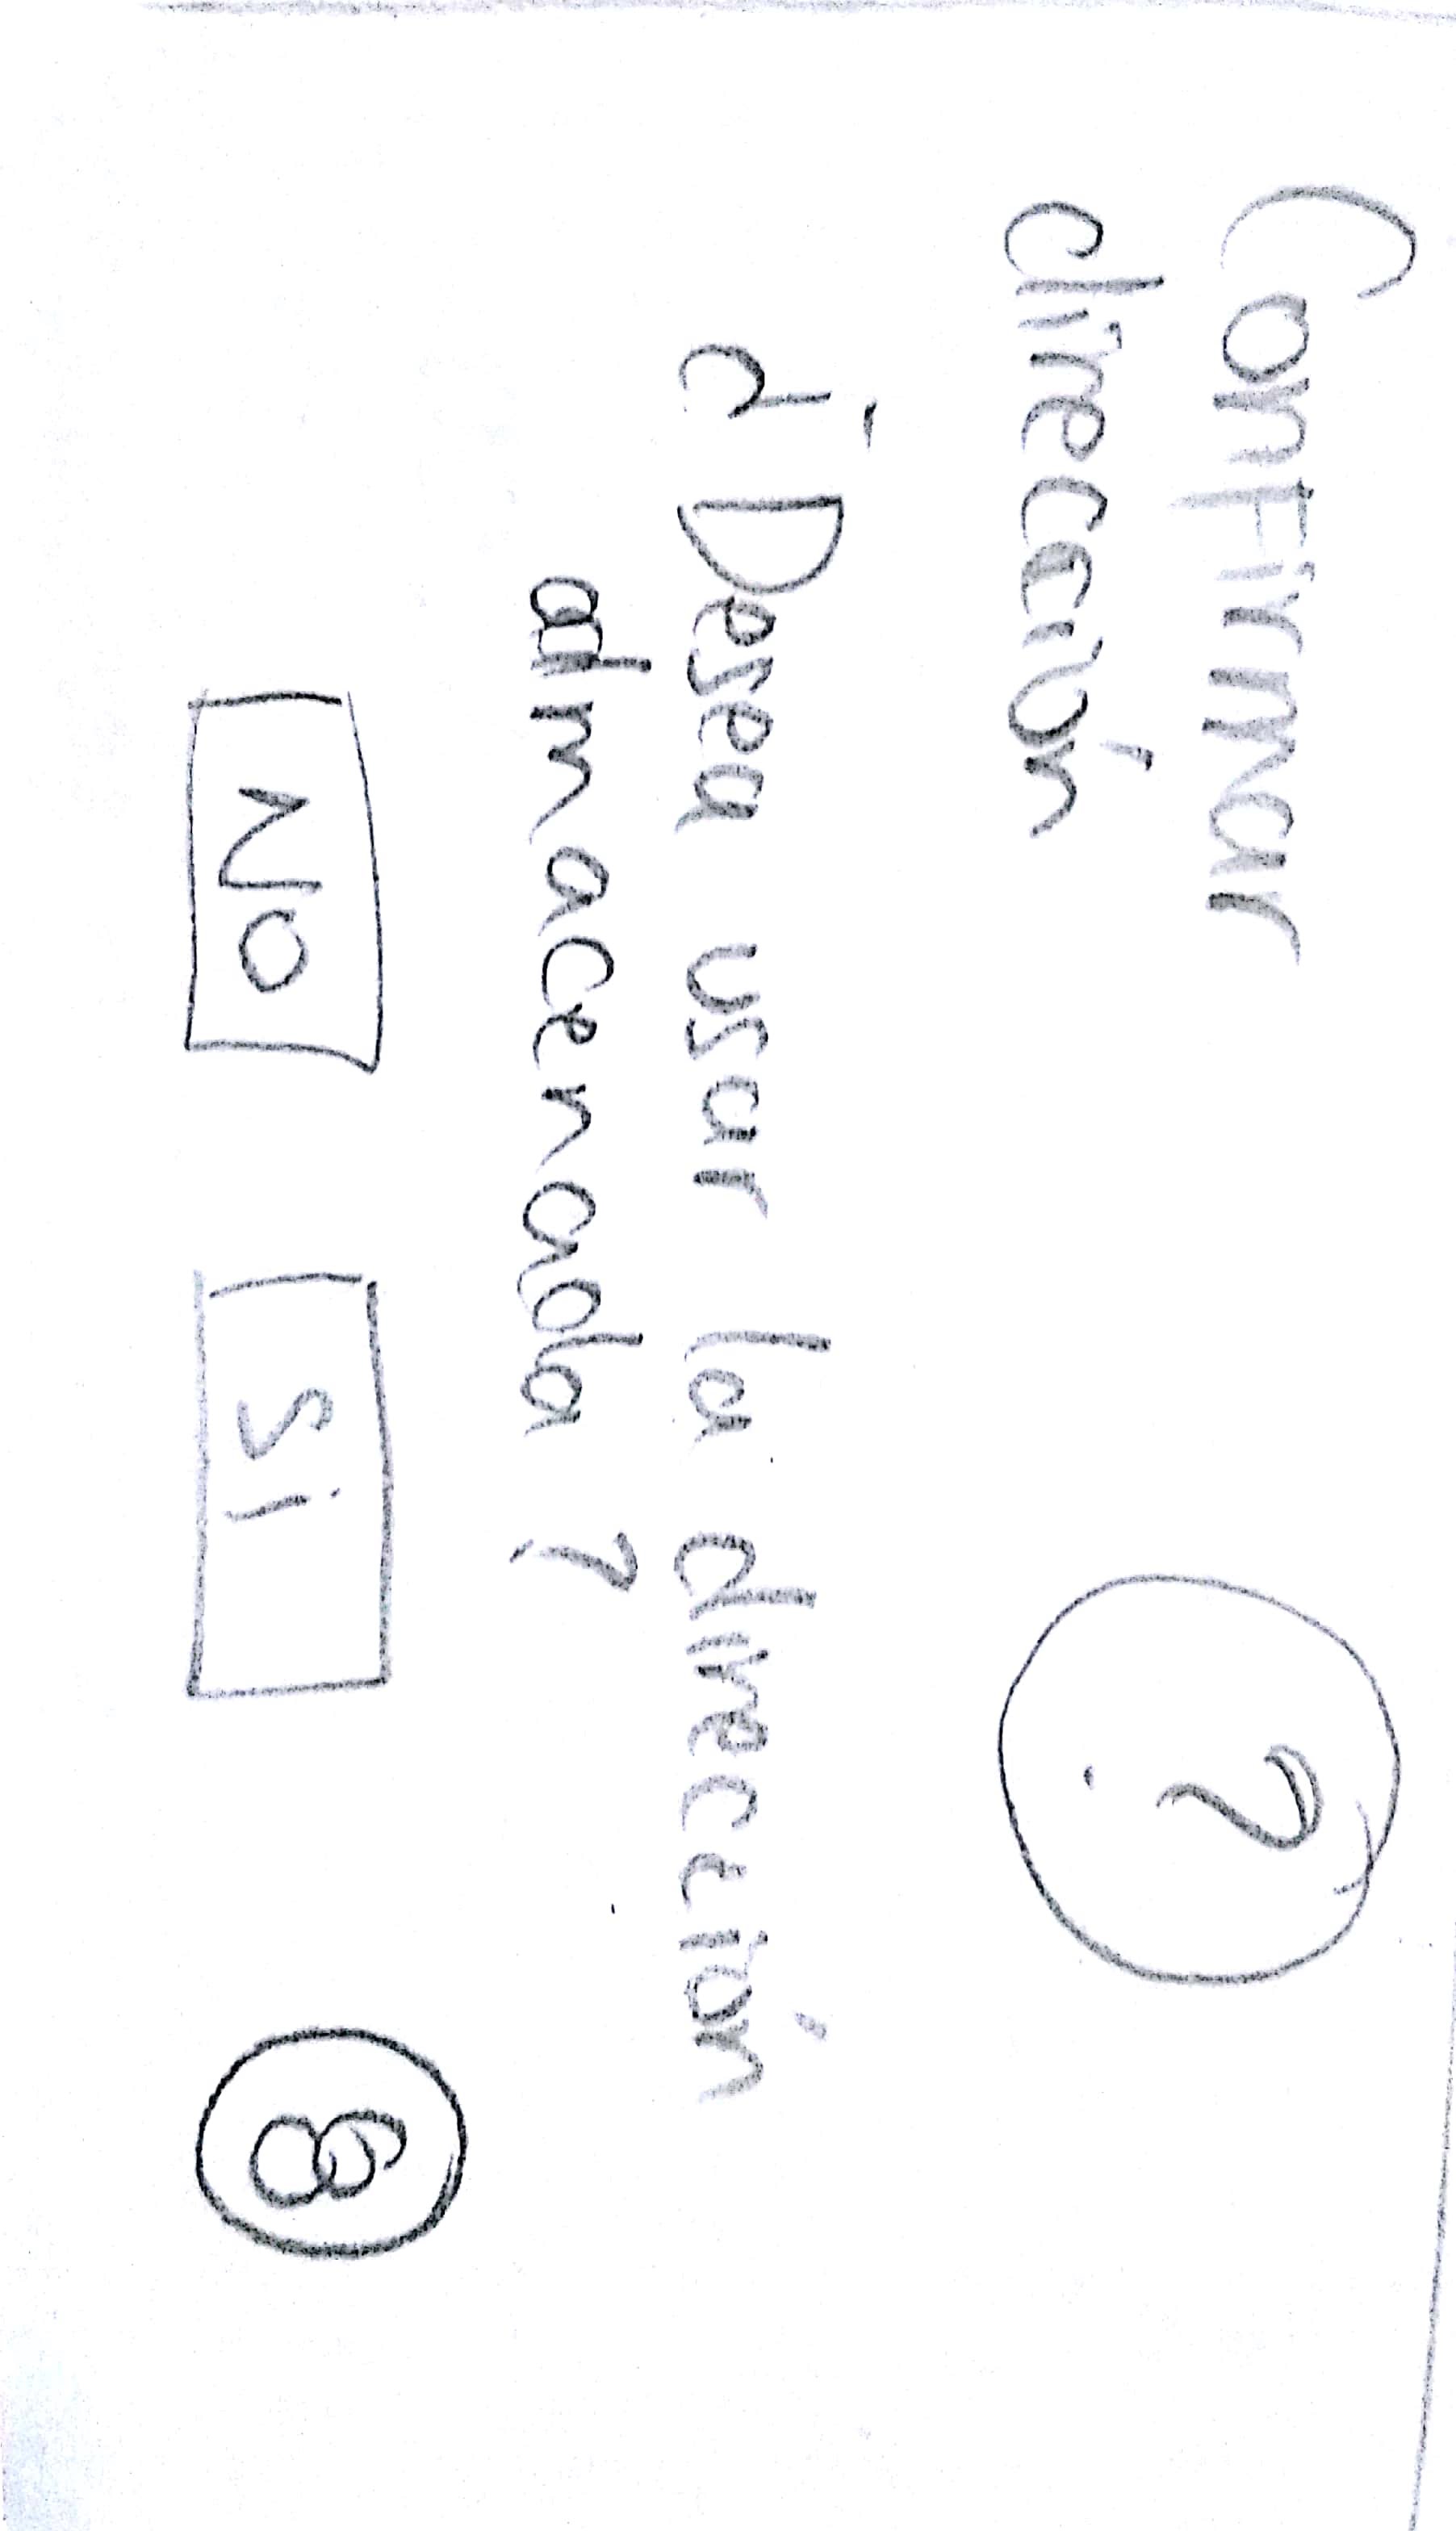 Confirmar
dirección
?
¿Desea usar la dirección
almacenada?
NO
Si